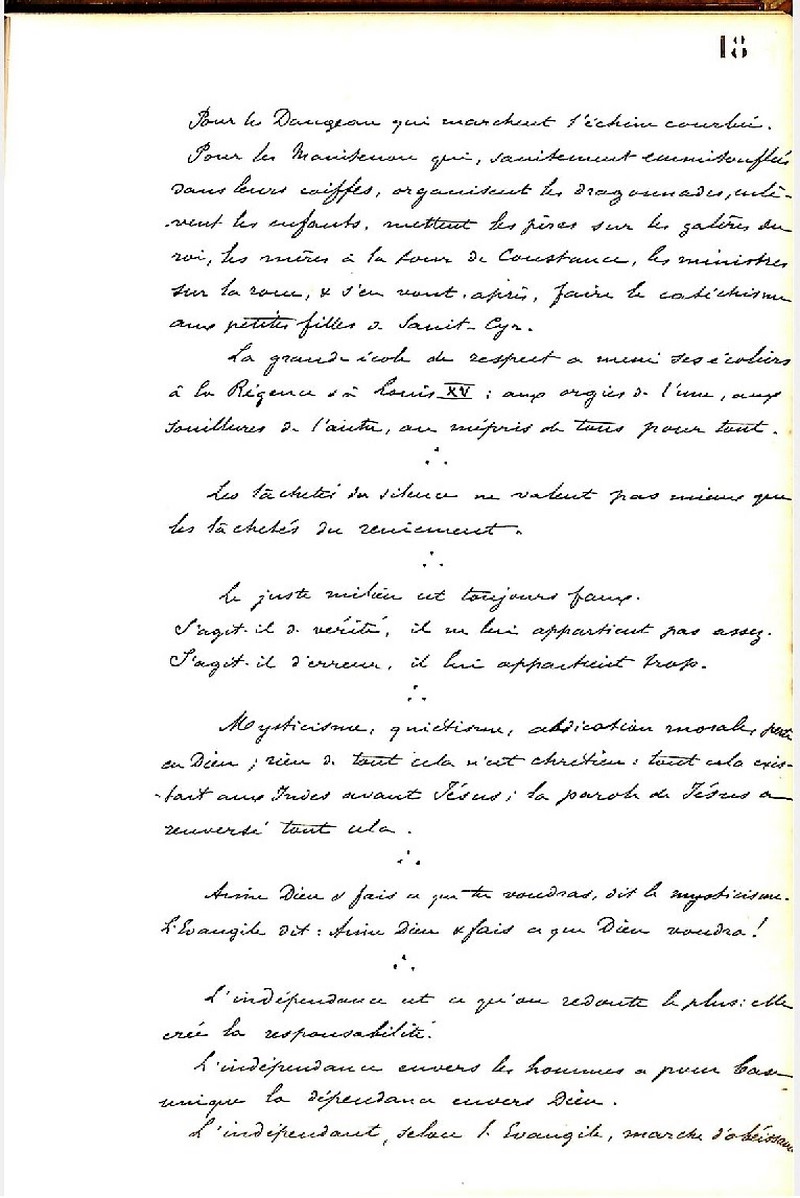 18
Pour les Dangeau qui marchent l'échine courbée.
Pour les Maintenon qui, saintement emmitouflées
dans leurs coiffes, organisent les dragonnades, enlè-
-vent les enfants, mettent les pères sur les galères du
roi, les mères à la tour de Constance, les ministres
sur la roue, & s'en vont, après, faire le catéchisme
aux petites filles de Saint-Cyr.
La grande école du respect a mené ses écoliers
à la Régence & à Louis XV : aux orgies de l'une, aux
souillures de l'autre, au mépris de tous pour tout.
∴
Les lâchetés du silence ne valent pas mieux que
les lâchetés du reniement.
∴
Le juste milieu est toujours faux.
S'agit-il de vérité, il ne lui appartient pas assez.
S'agit-il d'erreur, il lui appartient trop.
∴
Mysticisme, quiétisme, abdication morale, perte
en Dieu ; rien de tout cela n'est chrétien : tout cela exis-
-tait aux Indes avant Jésus ; la parole de Jésus a
renversé tout cela.
∴
Aime Dieu & fais ce que tu voudras, dit le mysticisme.
L'Evangile dit : Aime Dieu & fais ce que Dieu voudra !
∴
L'indépendance est ce qu'on redoute le plus : elle
crée la responsabilité.
L'indépendance envers les hommes a pour base
unique la dépendance envers Dieu.
L'indépendant, selon l'Evangile, marche d'obéissance